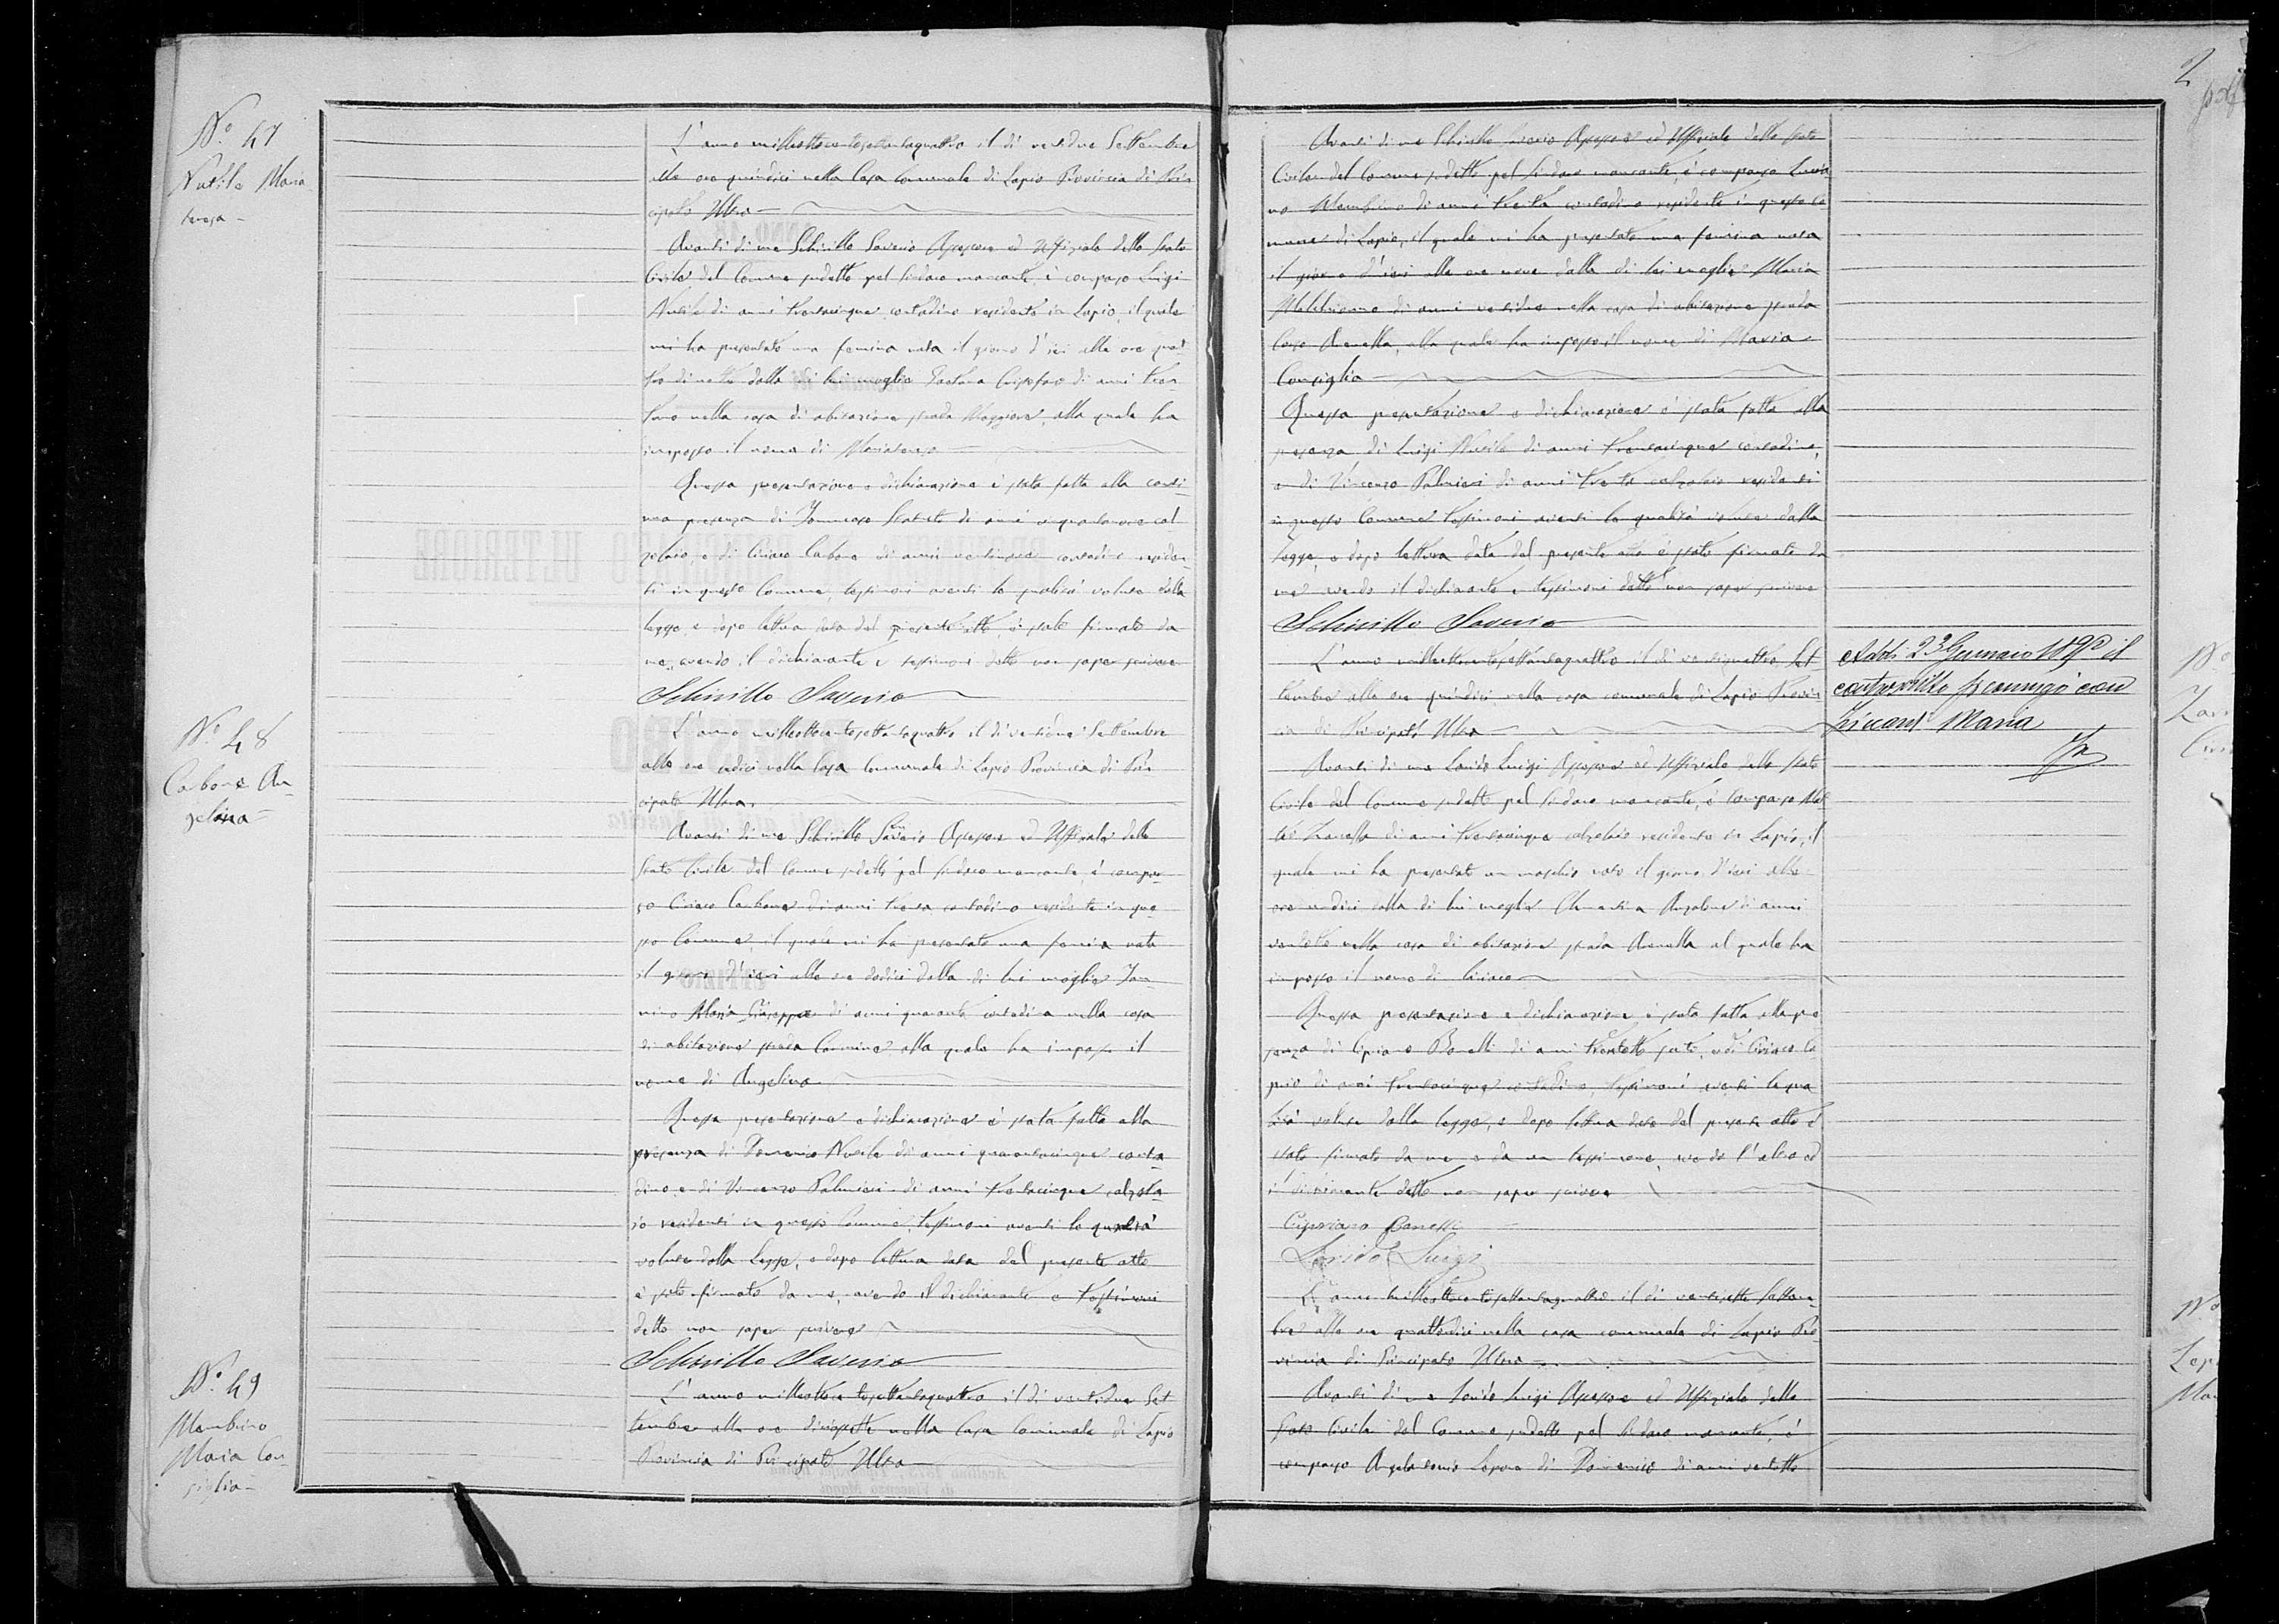 No. 47
Nutile Maria
teresa
L'anno milleottocentosettantaquattro il dì ventidue Settembre
alle ore quindici nella Casa Comunale di Lapio Provincia di Prin
cipato Ultra
Avanti di me Schirillo Saverio Assessore ed Uffiziale dello Stato
Civile del Comune sudetto pel Sindaco mancante è comparso Luigi
Nutile di anni trentacinque contadino residente in Lapio, il quale
mi ha presentato una femina nata il giorno d'ieri alle ore quat
tro di notte dalla di lui moglie di anni tren
nella casa di abitazione strada Maggiore, alla quale ha
imposto il nome di Mariateresa
Questa presentazione e dichiarazione è stata fatta alla conti
nua presenza di Tommaso di anni cal
zolaio, e di Ciriaco Carbone di anni contadino residen
ti in questo Comune, testimoni aventi le qualità volute dalla
legge, e dopo lettura data del presente atto, è stato firmato da
me, avendo il dichiarante e testimoni detto non saper scrivere
Schirillo Saverio
No. 48
Carbone An
gelina
L'anno milleottocentosettantaquattro il dì ventidue Settembre
alle ore sedici nella Casa Comunale di Lapio Provincia di Prin
cipato Ultra.
Avanti di me Schirillo Saverio Assessore ed Uffiziale dello
Stato Civile del Comune sudetto pel Sindaco mancante, è compar
so Ciriaco Carbone di anni trenta contadino residente in que
sto Comune, il quale mi ha presentato una femina nata
il giorno d'ieri alle ore dodici dalla di lui moglie Ian
nino Maria Giuseppa di anni quaranta contadina nella casa
di abitazione strada Carmine alla quale ha imposto il
nome di Angelina
Questa presentazione e dichiarazione è stata fatta alla
presenza di Domenico Nutile di anni quarantacinque conta
dino e di Vincenzo Palmieri di anni trentacinque calzola
io residenti in questo Comune, testimoni aventi le qualità
volute dalla Legge, e dopo lettura data del presente atto
è stato firmato da me, avendo il dichiarante e testimoni
detto non saper scrivere
Schirillo Saverio
No. 49
Membrino
Maria Con
siglia
L'anno milleottocentosettantaquattro il dì ventidue Set
tembre alle ore diciasette nella Casa Comunale di Lapio
Provincia di Principato Ultra
2
Avanti di me Schirillo Saverio Assessore ed Uffiziale dello Stato
Civile del Comune sudetto pel Sindaco mancante, è comparso
Membrino di anni trenta contadino residente in questo Co
mune di Lapio, il quale mi ha presentato una femina nata
il giorno d'ieri alle ore nove dalla di lui moglie Maria
di anni ventidue nella casa di abitazione strada
Arenella, alla quale ha imposto il nome di Maria
Consiglia
Questa presentazione e dichiarazione è stata fatta alla
presenza di Luigi Nutile di anni trentacinque contadino,
e di Vincenzo Palmieri di anni trenta calzolaio residenti
in questo Comune testimoni aventi le qualità volute dalla
legge, e dopo lettura data del presente atto è stato firmato da
me avendo il dichiarante e testimoni detto non saper scrivere
Schirillo Saverio
L'anno milleottocentosettantaquattro il dì ventiquattro Set
tembre alle ore quindici nella casa comunale di Lapio Provin
cia di Principato Ultra
Avanti di me Lonido Luigi Assessore ed Uffiziale dello Stato
Civile del Comune sudetto pel Sindaco mancante, è comparso Mat
teo di anni trentacinque calzolaio residente in Lapio, il
quale mi ha presentato un maschio nato il giorno d'ieri alle
ore undici dalla di lui moglie Clementina di anni
ventotto nella casa di abitazione strada Arenella al quale ha
imposto il nome di Ciriaco
Questa presentazione e dichiarazione è stata fatta alla pre
senza di Cipriano di anni trentotto sarto, e di Ciriaco
di anni trentacinque contadino, testimoni aventi le qua
lità volute dalla legge, e dopo lettura data del presente atto è
stato firmato da me e da un testimone, avendo l'altro ed
il dichiarante detto non saper scrivere
Cipriano
Lonido Luigi
L'anno milleottocentosettantaquattro il dì ventisette Settem
bre alle ore quattordici nella casa comunale di Lapio Pro
vincia di Principato Ultra
Avanti di me Lonido Luigi Assessore ed Uffiziale dello
Stato Civile del Comune sudetto pel Sindaco mancante, è
comparso Angelantonio Lepore di Domenico di anni ventotto
Addì 23 Gennaio il
controscritto si coniugò con
Maria
No
No
Lep
Mar